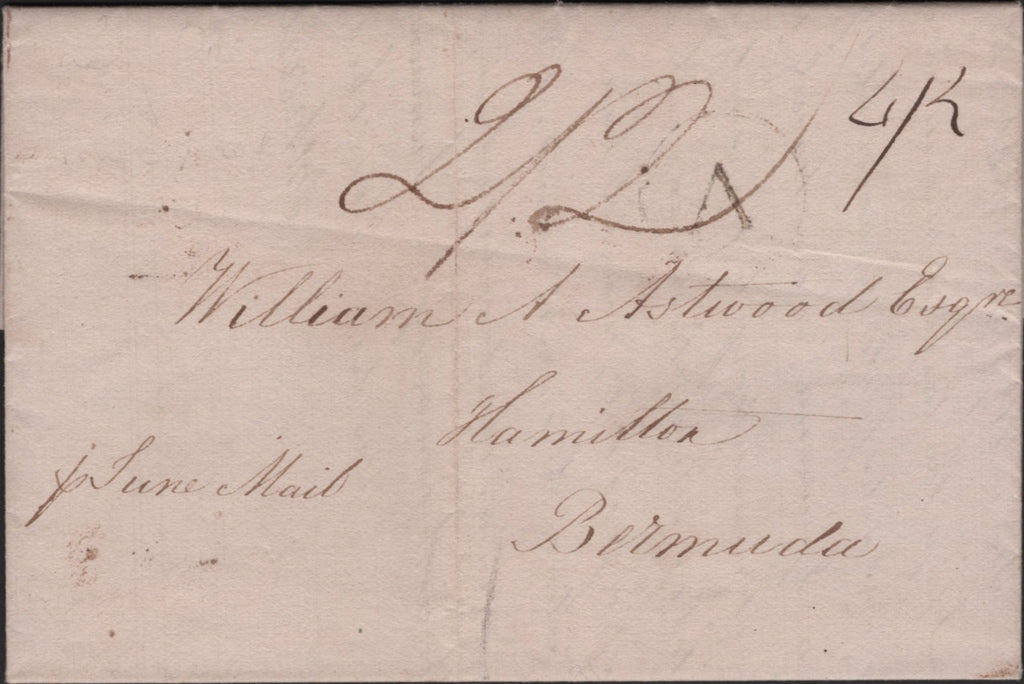 2/2
William A Astwood Esqre
Hamilton
p June Mail
Bermuda